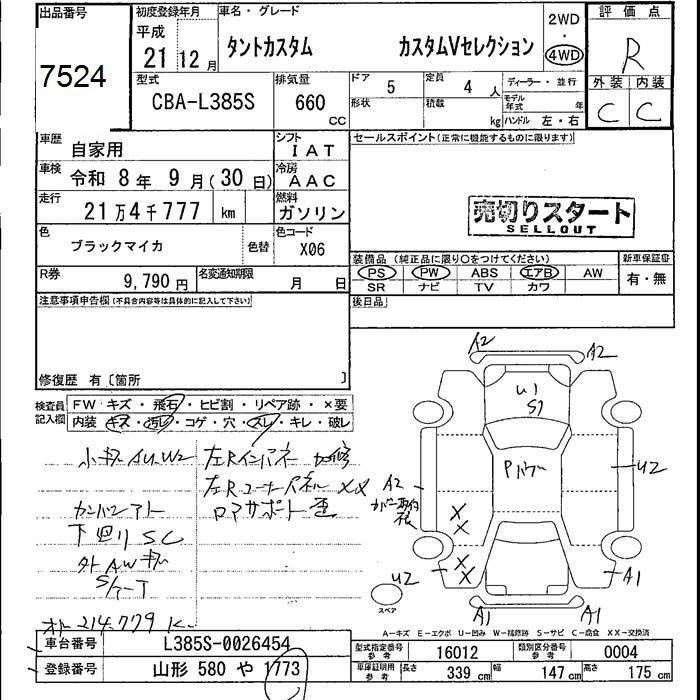 出品番号
7524
初度登録年月
平成
21 12月
車名・グレード
タントカスタム カスタムVセレクション
2WD
・
4WD
評価点
R
外装 内装
C C
型式
CBA-L385S
排気量
660
CC
ドア
5
定員
4 人
形状
積載
kg
ディーラー・並行
モデル年式 年
ハンドル 左・右
車歴
自家用
シフト
IAT
車検
令和 8年 9月(30日)
冷房
AAC
走行
21万4千777 km
燃料
ガソリン
色
ブラックマイカ
色替
色コード
X06
R券
9,790円
名変通知期限
月 日
セールスポイント(正常に機能するものに限ります)
売切りスタート
SELLOUT
装備品(純正品に限り○をつけてください)
新車保証書
PS PW ABS エアB AW
SR ナビ TV カワ
有・無
後日品
注意事項申告欄(不具合内容等は具体的に記入して下さい)
修復歴 有〔箇所 〕
検査員
記入欄
FW キズ・飛石・ヒビ割・リペア跡・×要
内装 キズ・汚レ・コゲ・穴・スレ・キレ・破レ
小キズ AU.W2
左Rインパネ 加修
左Rコーナーパネル XX
ロアサポート 歪
下回り SC
外AWキズ
214.779 K
A2
A2
U1
S1
Pパワー
A2
U2
X
X
X
X
U2
スペア
A1
A1
A1
A1
A-キズ E-エクボ U-凹み W-補修跡 S-サビ C-腐食 XX-交換済
車台番号
L385S-0026454
登録番号
山形 580 や 1773
型式指定番号
参考
16012
類別区分番号
参考
0004
車庫証明用
参考
長さ 339 cm 幅 147 cm 高さ 175 cm